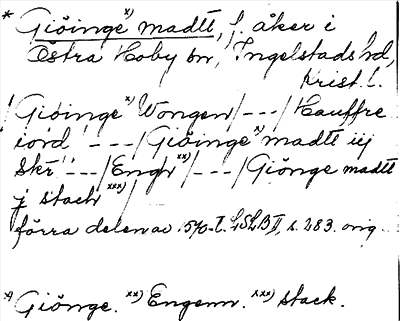 * Giöinge x) madtt, f. åker i
Östra Hoby sn, Ingelstads hd,
Krist. l.
/Giöinge x) Wongen/---/Hauffre
iord/---/Giöinge x) madtt iij
Skr/---/Engh xx)/---/Giönge madtt
j stach xxx)/
förra delen av 1570-t. LSLB II, s. 283. orig.
x) Giömge. xx) Engenn. xxx) stack.